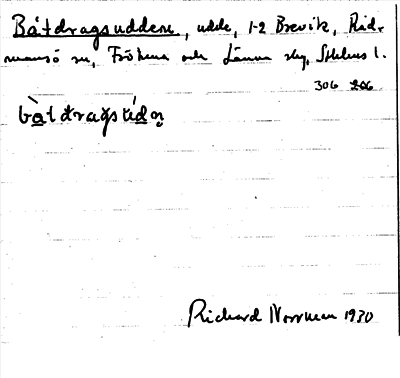 Båtdragsudden, udde, 1-2 Brevik, Rid-
mansö sn, Frötuna och Länna skg, Sthlms l.
306 206
bàtdragsúdn̥
Richard Norrman 1930